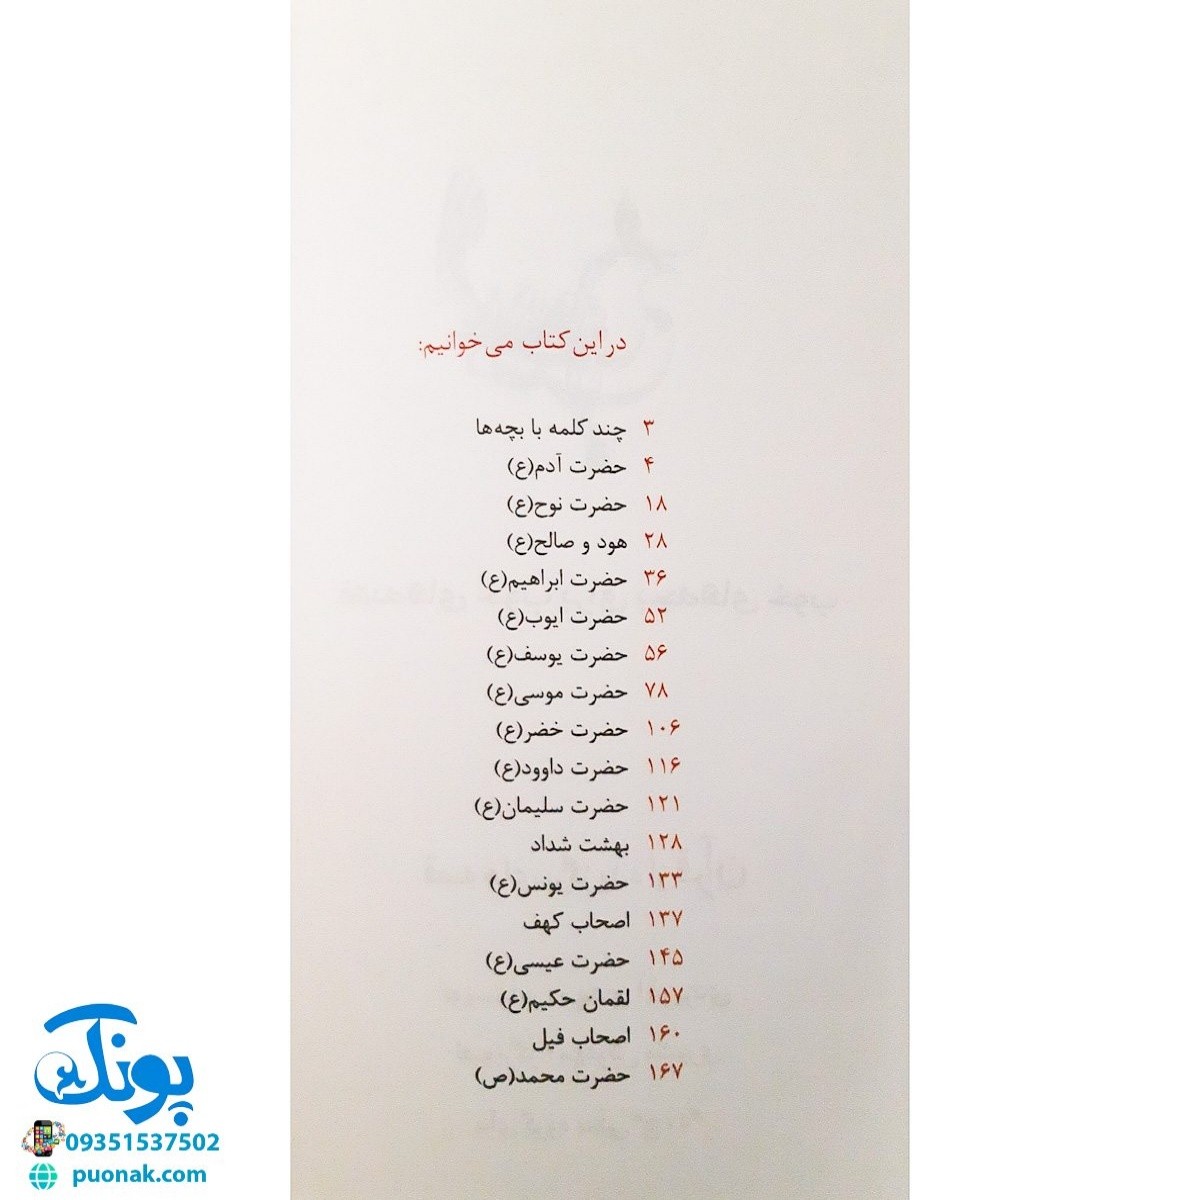 در این کتاب می‌خوانیم:
۳ چند کلمه با بچه‌ها
۴ حضرت آدم(ع)
۱۸ حضرت نوح(ع)
۲۸ هود و صالح(ع)
۳۶ حضرت ابراهیم(ع)
۵۲ حضرت ایوب(ع)
۵۶ حضرت یوسف(ع)
۷۸ حضرت موسی(ع)
۱۰۶ حضرت خضر(ع)
۱۱۶ حضرت داوود(ع)
۱۲۱ حضرت سلیمان(ع)
۱۲۸ بهشت شداد
۱۳۳ حضرت یونس(ع)
۱۳۷ اصحاب کهف
۱۴۵ حضرت عیسی(ع)
۱۵۷ لقمان حکیم(ع)
۱۶۰ اصحاب فیل
۱۶۷ حضرت محمد(ص)
پونک
09351537502
puonak.com